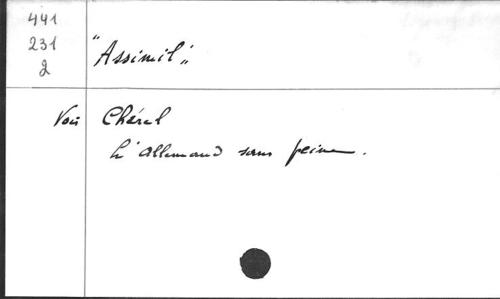 441
231
2
"Assimil"
Voir Chérel
L'allemand sans peine.